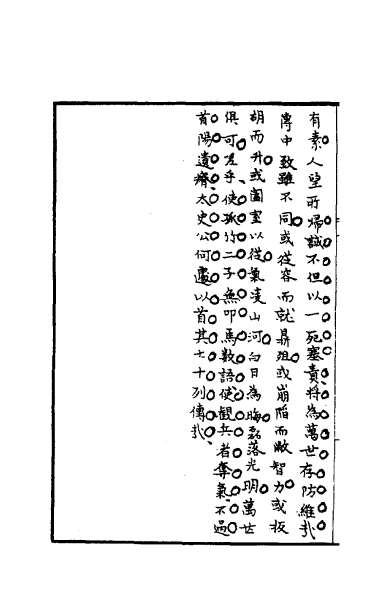 有素人望所歸誠不但以一死塞責將為萬世存防維哉
傳中致雖不同或從容而就鼎俎或崩陷而敝智力或扳
胡而升或闔室以從氣凌山河白日為晦磊落光明萬世
俱可乎使孤竹二子無叩馬數語使觀兵者奪氣不過
首陽遺瘠太史公何遽以首其七十列傳哉